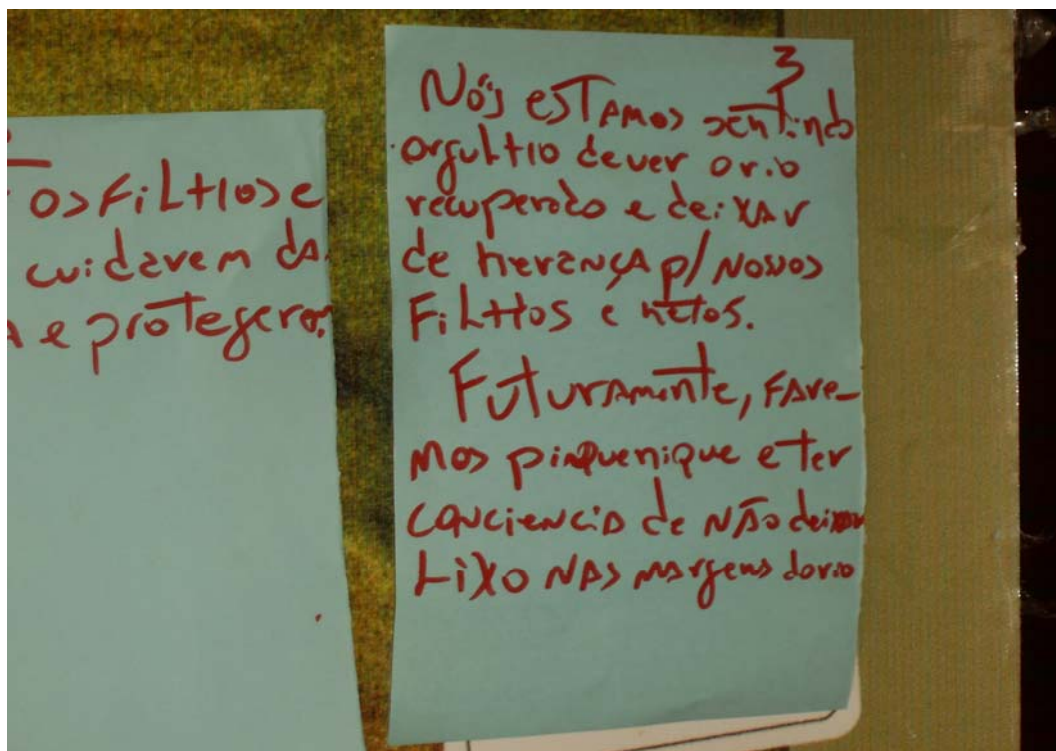 os FiLHos e
cuidarem da
A e proteger
3
Nós estamos sentindo
orgulHo de ver o rio
recuperado e deixar
de herança p/ nossos
FiLHos e netos.
Futuramente, fare-
mos piquenique e ter
conciencia de não deixar
Lixo nas margens do rio